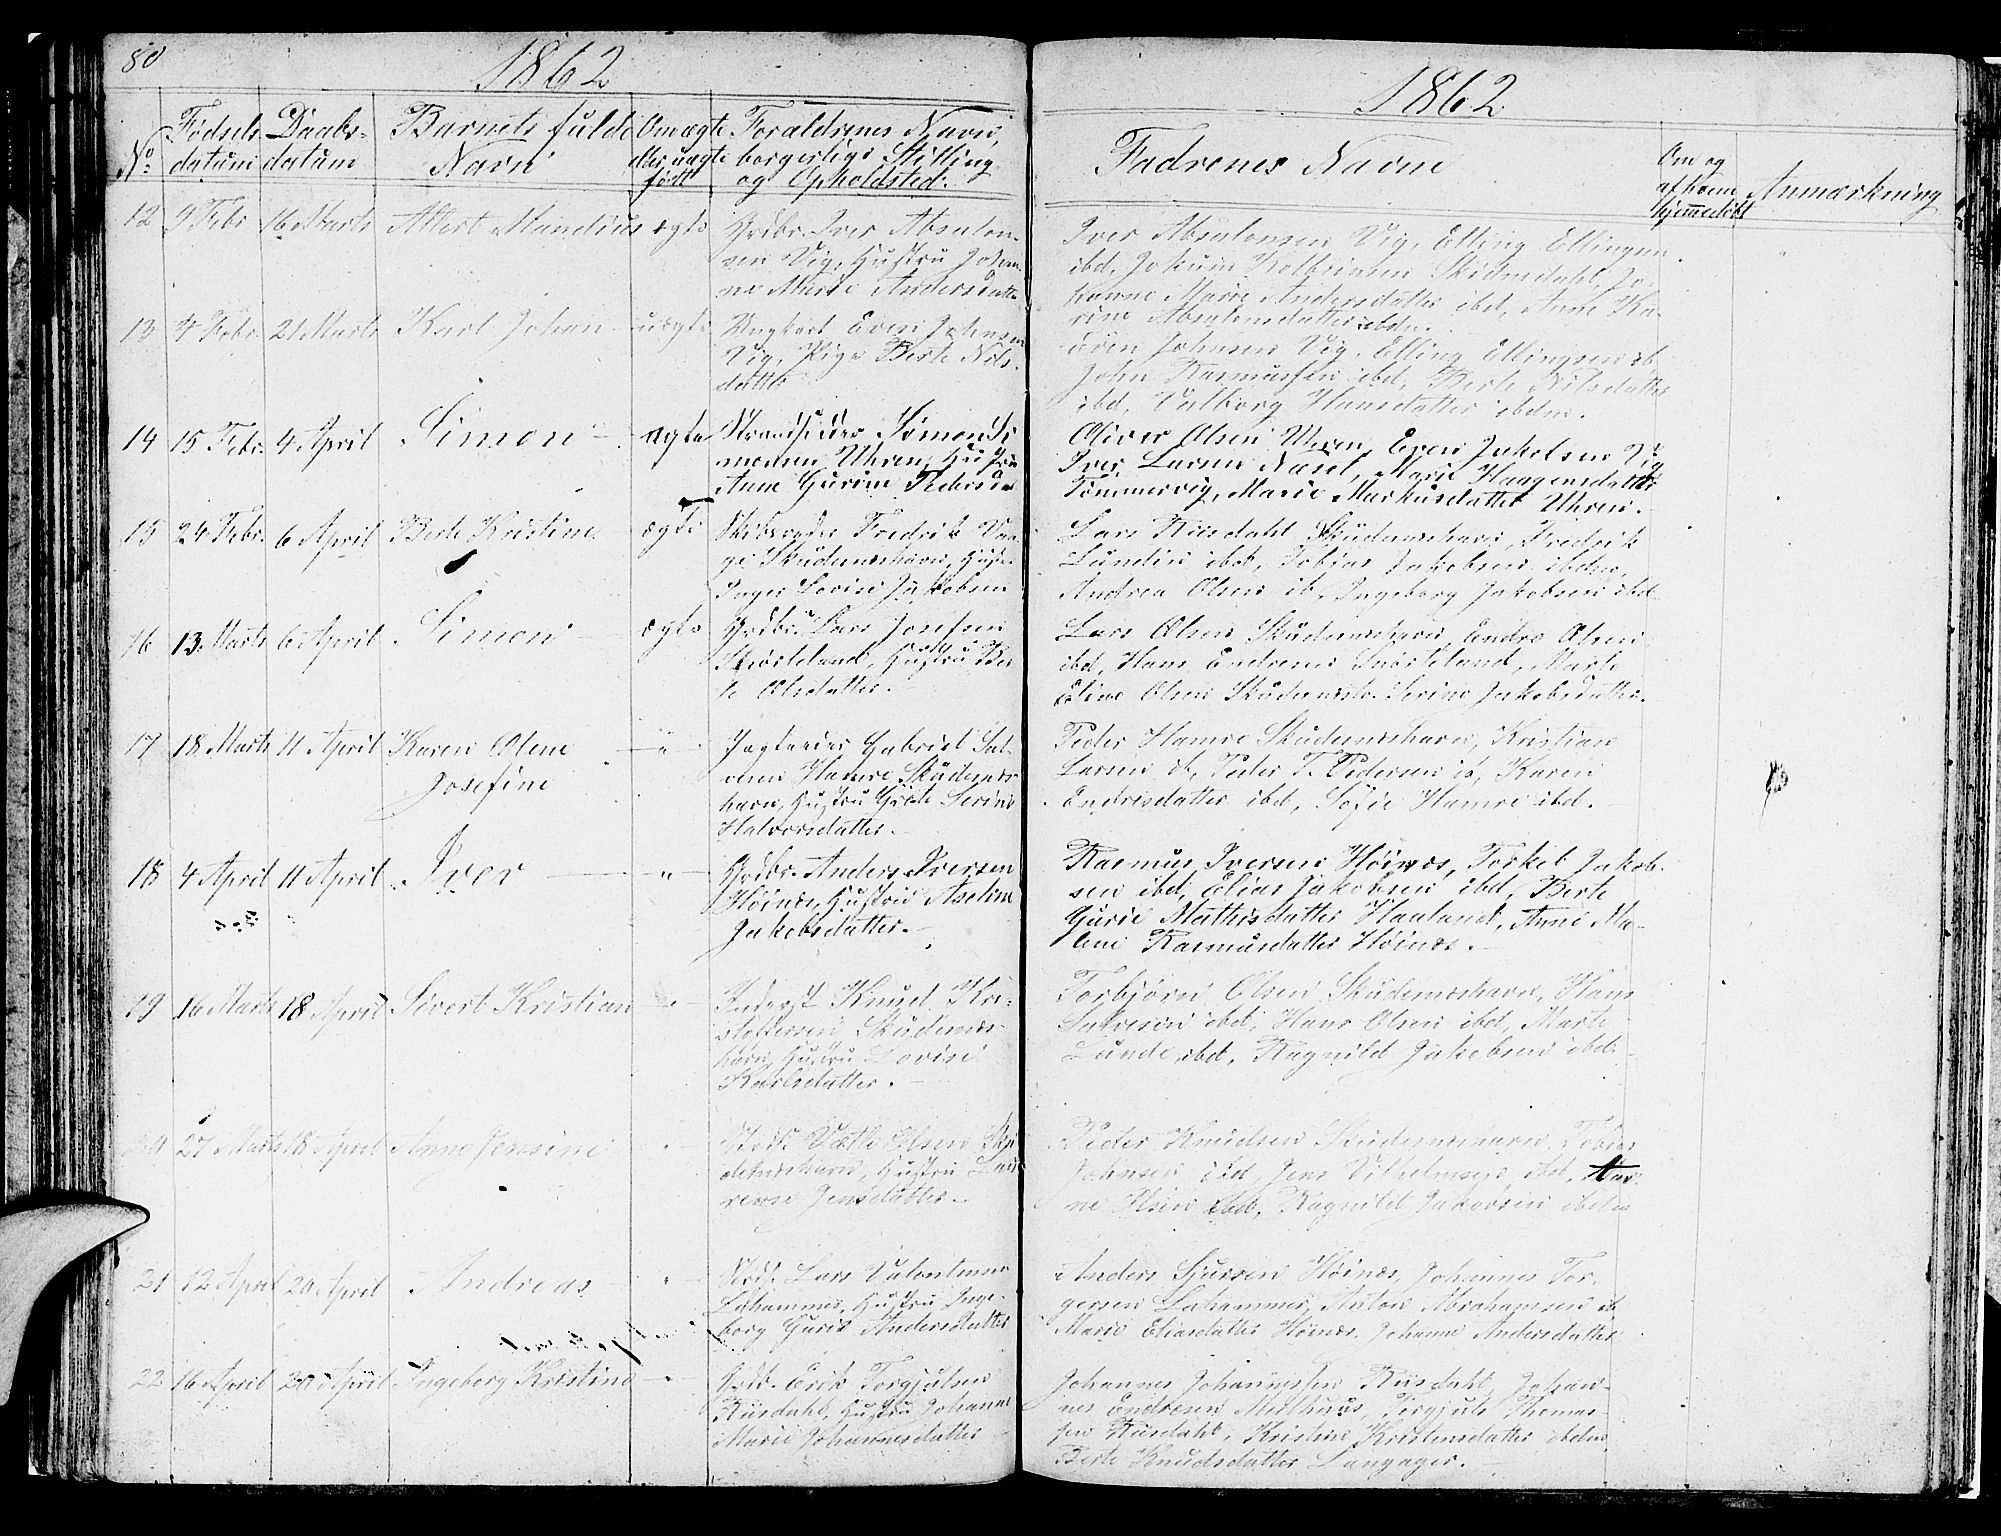 80
1862
No.
Fødsels datum
Daabs-datum
Barnets fulde Navn
Om ægte eller uægte født
Forældrenes Navn, borgerlige Stilling og Opholdsted.
12 9 Febr 16 Marts Albert Mandius ægte Grdbr. Iver Absalon-
sen Vig, Hustru Johan-
ne Marie Andersdatter
13 4 Febr. 21 Marts Karl Johan uægte Ungkarl Even Johnsen
Vig, Pige Berte Nils-
datter
14 15 Febr. 4 April Simon ægte Strandsidder Simon Si
monsen Uhren, Hustru
Anne Gurine Pedersd
15 24 Febr. 6 April Berte Kristine ægte Skibsreder Fredrik Vaa
ge Skudesneshavn, Hustru
Inger Lovise Jakobsen
16 13 Marts 6 April Simon ægte Grdbr. Lars Josefsen
Hustru Ber
te Olsdatter.
17 18 Marts 11 April Karen Olene " Jagtreder Gabriel Sal-
Josefine
vesen Hamre Skudesnæs
havn, Hustru Grete Serine
Halvorsdatter.
18 4 April 11 April Iver " Grdbr. Anders Iversen
Høinæs, Hustru Aseline
Jakobsdatter.
19 16 Marts 18 April Sivert Kristian " Inderst Knud Kri-
stoffersen Skudesnæs-
havn, Hustru Lovise
Karlsdatter.
20 27 Marts 18 April Anne Jensine " Olsen Sku
desneshavn, Hustru Lau
rense Jensdatter.
21 12 April 20 April Andreas " Lars Valentinsen
Lahammer, Hustru Inge-
borg Gurie Andersdatter
22 16 April 20 April Ingeborg Kristine " Grdb. Erik Torgjulsen
Riisdahl, Hustru Johanne
Marie Johannesdatter
1862
Fadrenes Navne
Om og af hvem hjemmedøbt
Anmærkning
Iver Absalonsen Vig, Elling Ellingsen
ibd, Jokum Kolbeinsen Jo-
hanne Marie Andersdatter ibd, Anne Ka-
rine Absalonsdatter ibdm.
Even Johnsen Vig, Elling Ellingsen ib,
John Rasmussen ibd, Berte Nilsdatter
ibd, Valborg Hansdatter ibdm.
Oliver Olsen Uhren, Even Jakobsen Vig
Iver Larsen Næset, Marie Haagensdatter
Tømmervig, Marie Markusdatter Uhren.
Lars Riisdahl Skudesneshavn, Fredrik
Lundin ibd, Tobias Jakobsen ibdm,
Andrea Olsen ib, Ingeborg Jakobsen ibd
Lars Olsen Skudesneshavn, Endre Olsen
ibd, Hans Endresen Marte
Eline Olsen Serine Jakobsdatter.
Peder Hamre Skudesneshavn, Kristian
Larsen ib, Peder T. Pedersen ib, Karen
Endresdatter ibd, Sofie Hamre ibd.
Rasmus Iversen Høinæs, Torkel Jakob-
sen ibd, Elias Jakobsen ibd, Berte
Gurie Mathisdatter Hauland, Anne Ma-
lene Rasmusdatter Høinæs.
Torbjørn Olsen Skudesneshavn, Hans
ibd, Hans Olsen ibd, Marte
Lunde, ibd, Ragnild Jakobsen ibd.
Peder Knudsen Skudesneshavn, Tobias
Johnsen ibd, Jens Vilhelmsen ibd,
ne Olsen ibd, Ragnild Jakobsen ibdm
Anders Sjursen Høinæs, Johannes Tor-
gersen Lahammer, Anton Abrahamsen ib
Marie Eliasdatter Høinæs, Johanne Andersdatter
Johannes Johannessen Riisdahl, Johan-
nes Endresen Torgjuls Thomas
sen Riisdahl, Kristine Kristensdatter ibdm
Berte Knudsdatter Langager.